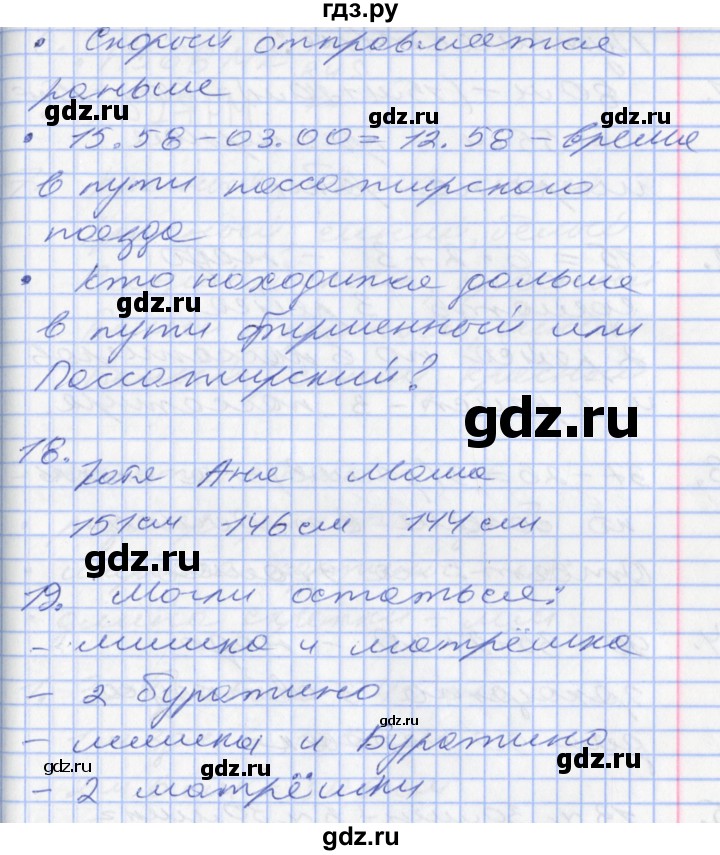 гдз.ру
• Скорый отправляется
раньше
gdz.ru
• 15.58 – 03.00 = 12.58 – время
gdz.ru
в пути пассажирского
поезда
• Кто находится дольше
gdz.ru
в пути фирменный или
Пассажирский?
gdz.ru
18.
Катя Аня Маша
151 см 146 см 144 см
gdz.ru
19. Могли остаться:
– мишка и матрёшка
– 2 буратино
gdz.ru
– мишка и Буратино
gdz.ru
gdz.ru
– 2 матрёшки
gdz.ru